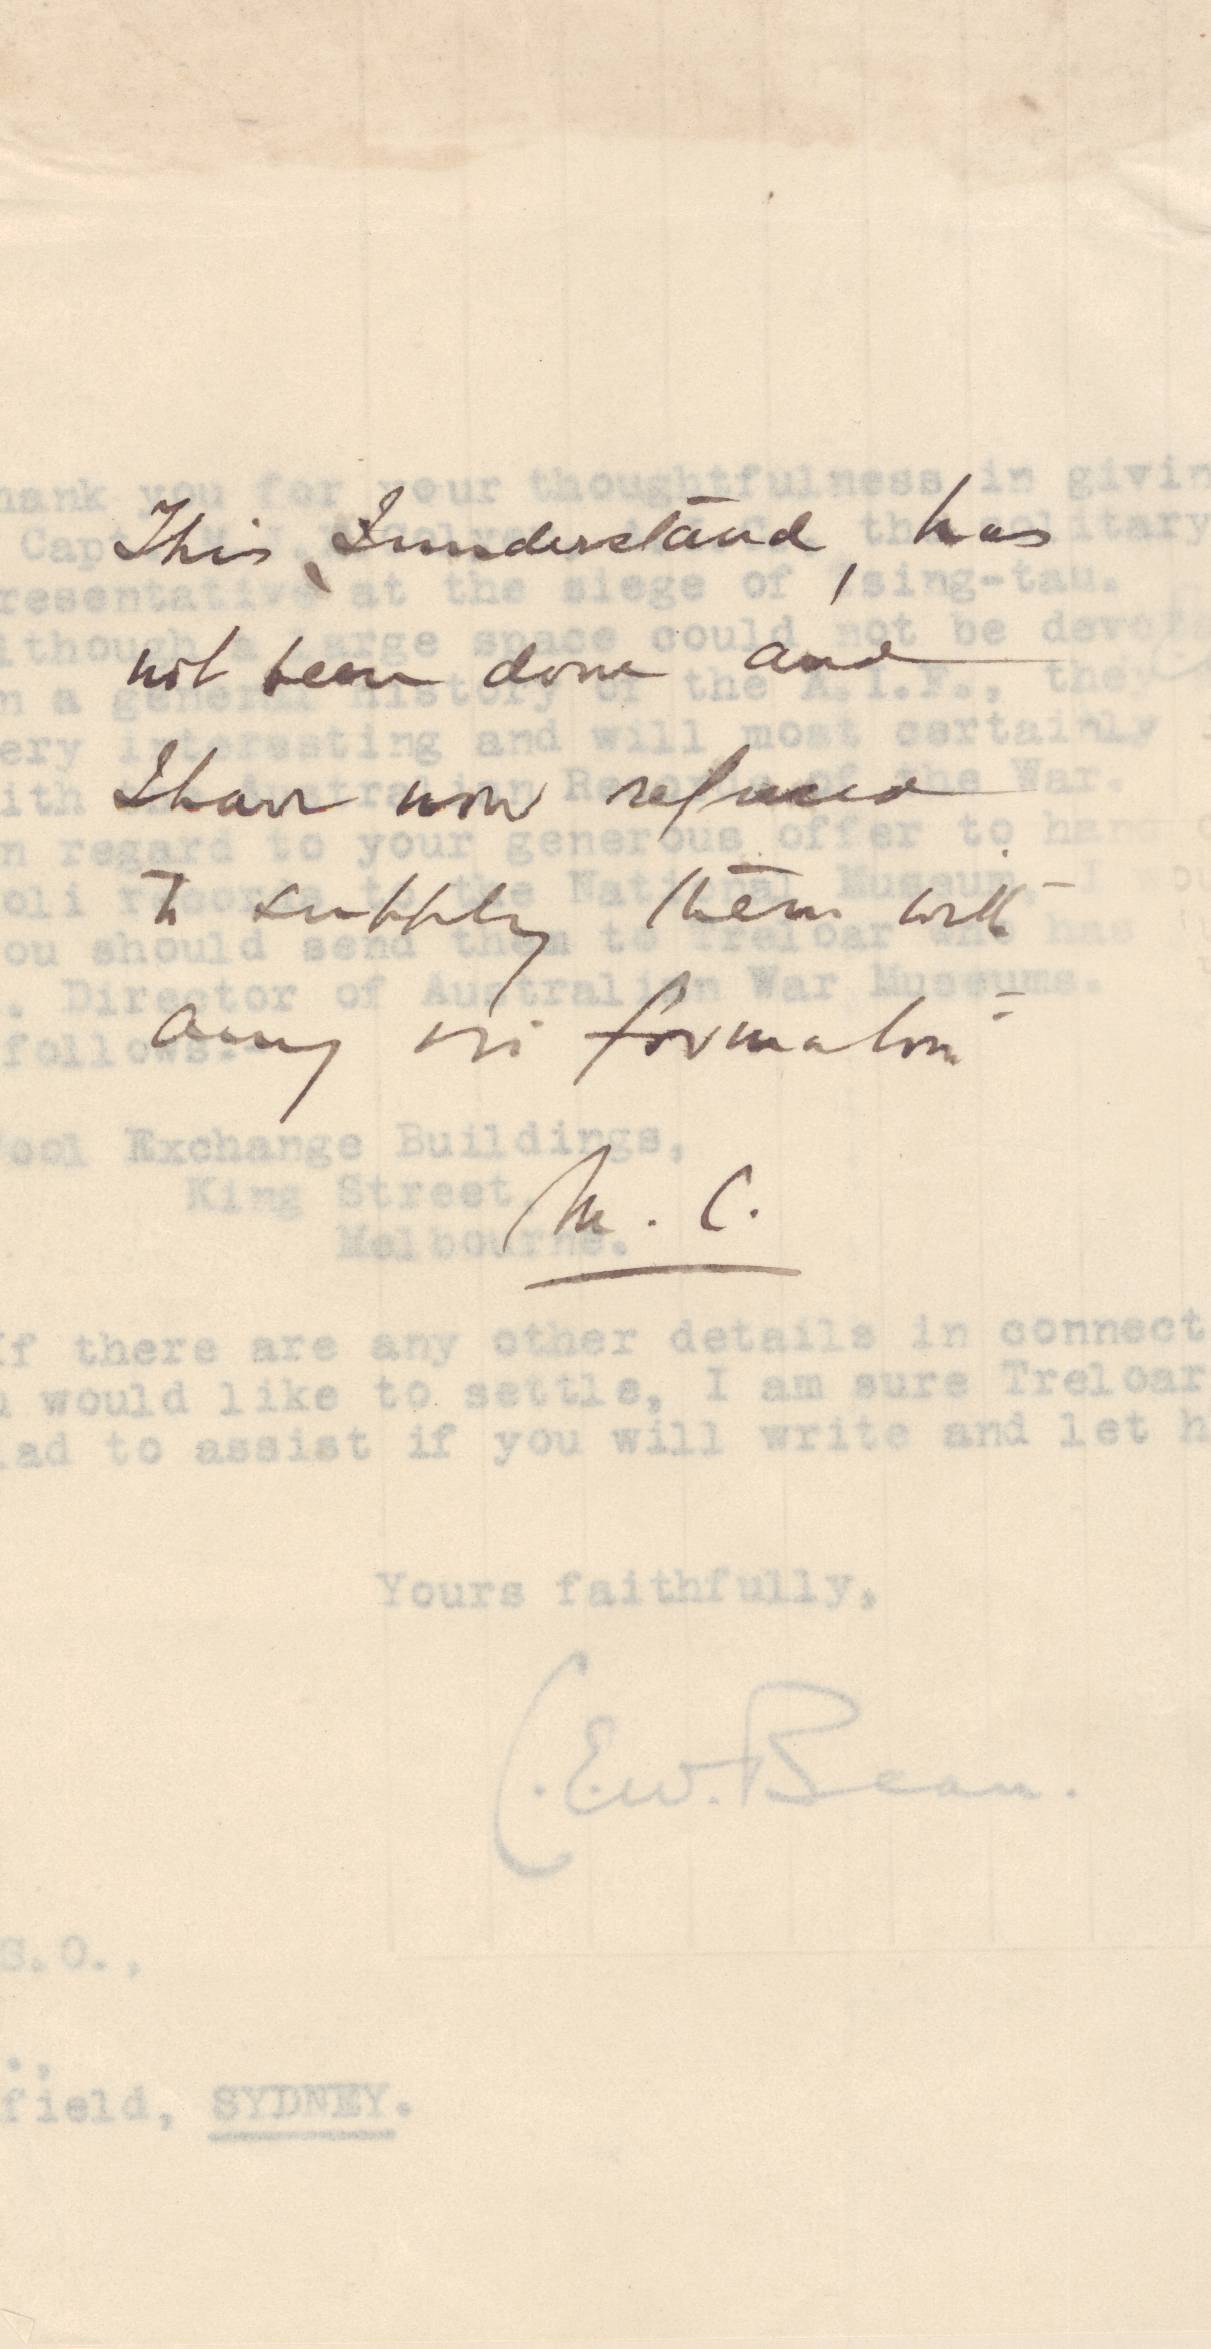 This, I understand, has
not been done and
I have now refused
to supply them with
any information
M. C.
hank you for your thoughtfulness in givin
Cap
the solitary
resentative at the siege of Tsing-tau.
lthough a large space could not be devote
n a general history of the A.I.F., they
ery interesting and will most certainly
ith the Australian Records of the War.
n regard to your generous offer to hand
oli records to the National Museum, I
ou should send them to Treloar who has
. Director of Australian War Museums.
follows:-
ool Exchange Buildings,
King Street,
Melbourne.
If there are any other details in connect
u would like to settle, I am sure Treloar
lad to assist if you will write and let h
Yours faithfully,
C.E.W. Bean.
S.O.,
.,
field, SYDNEY.